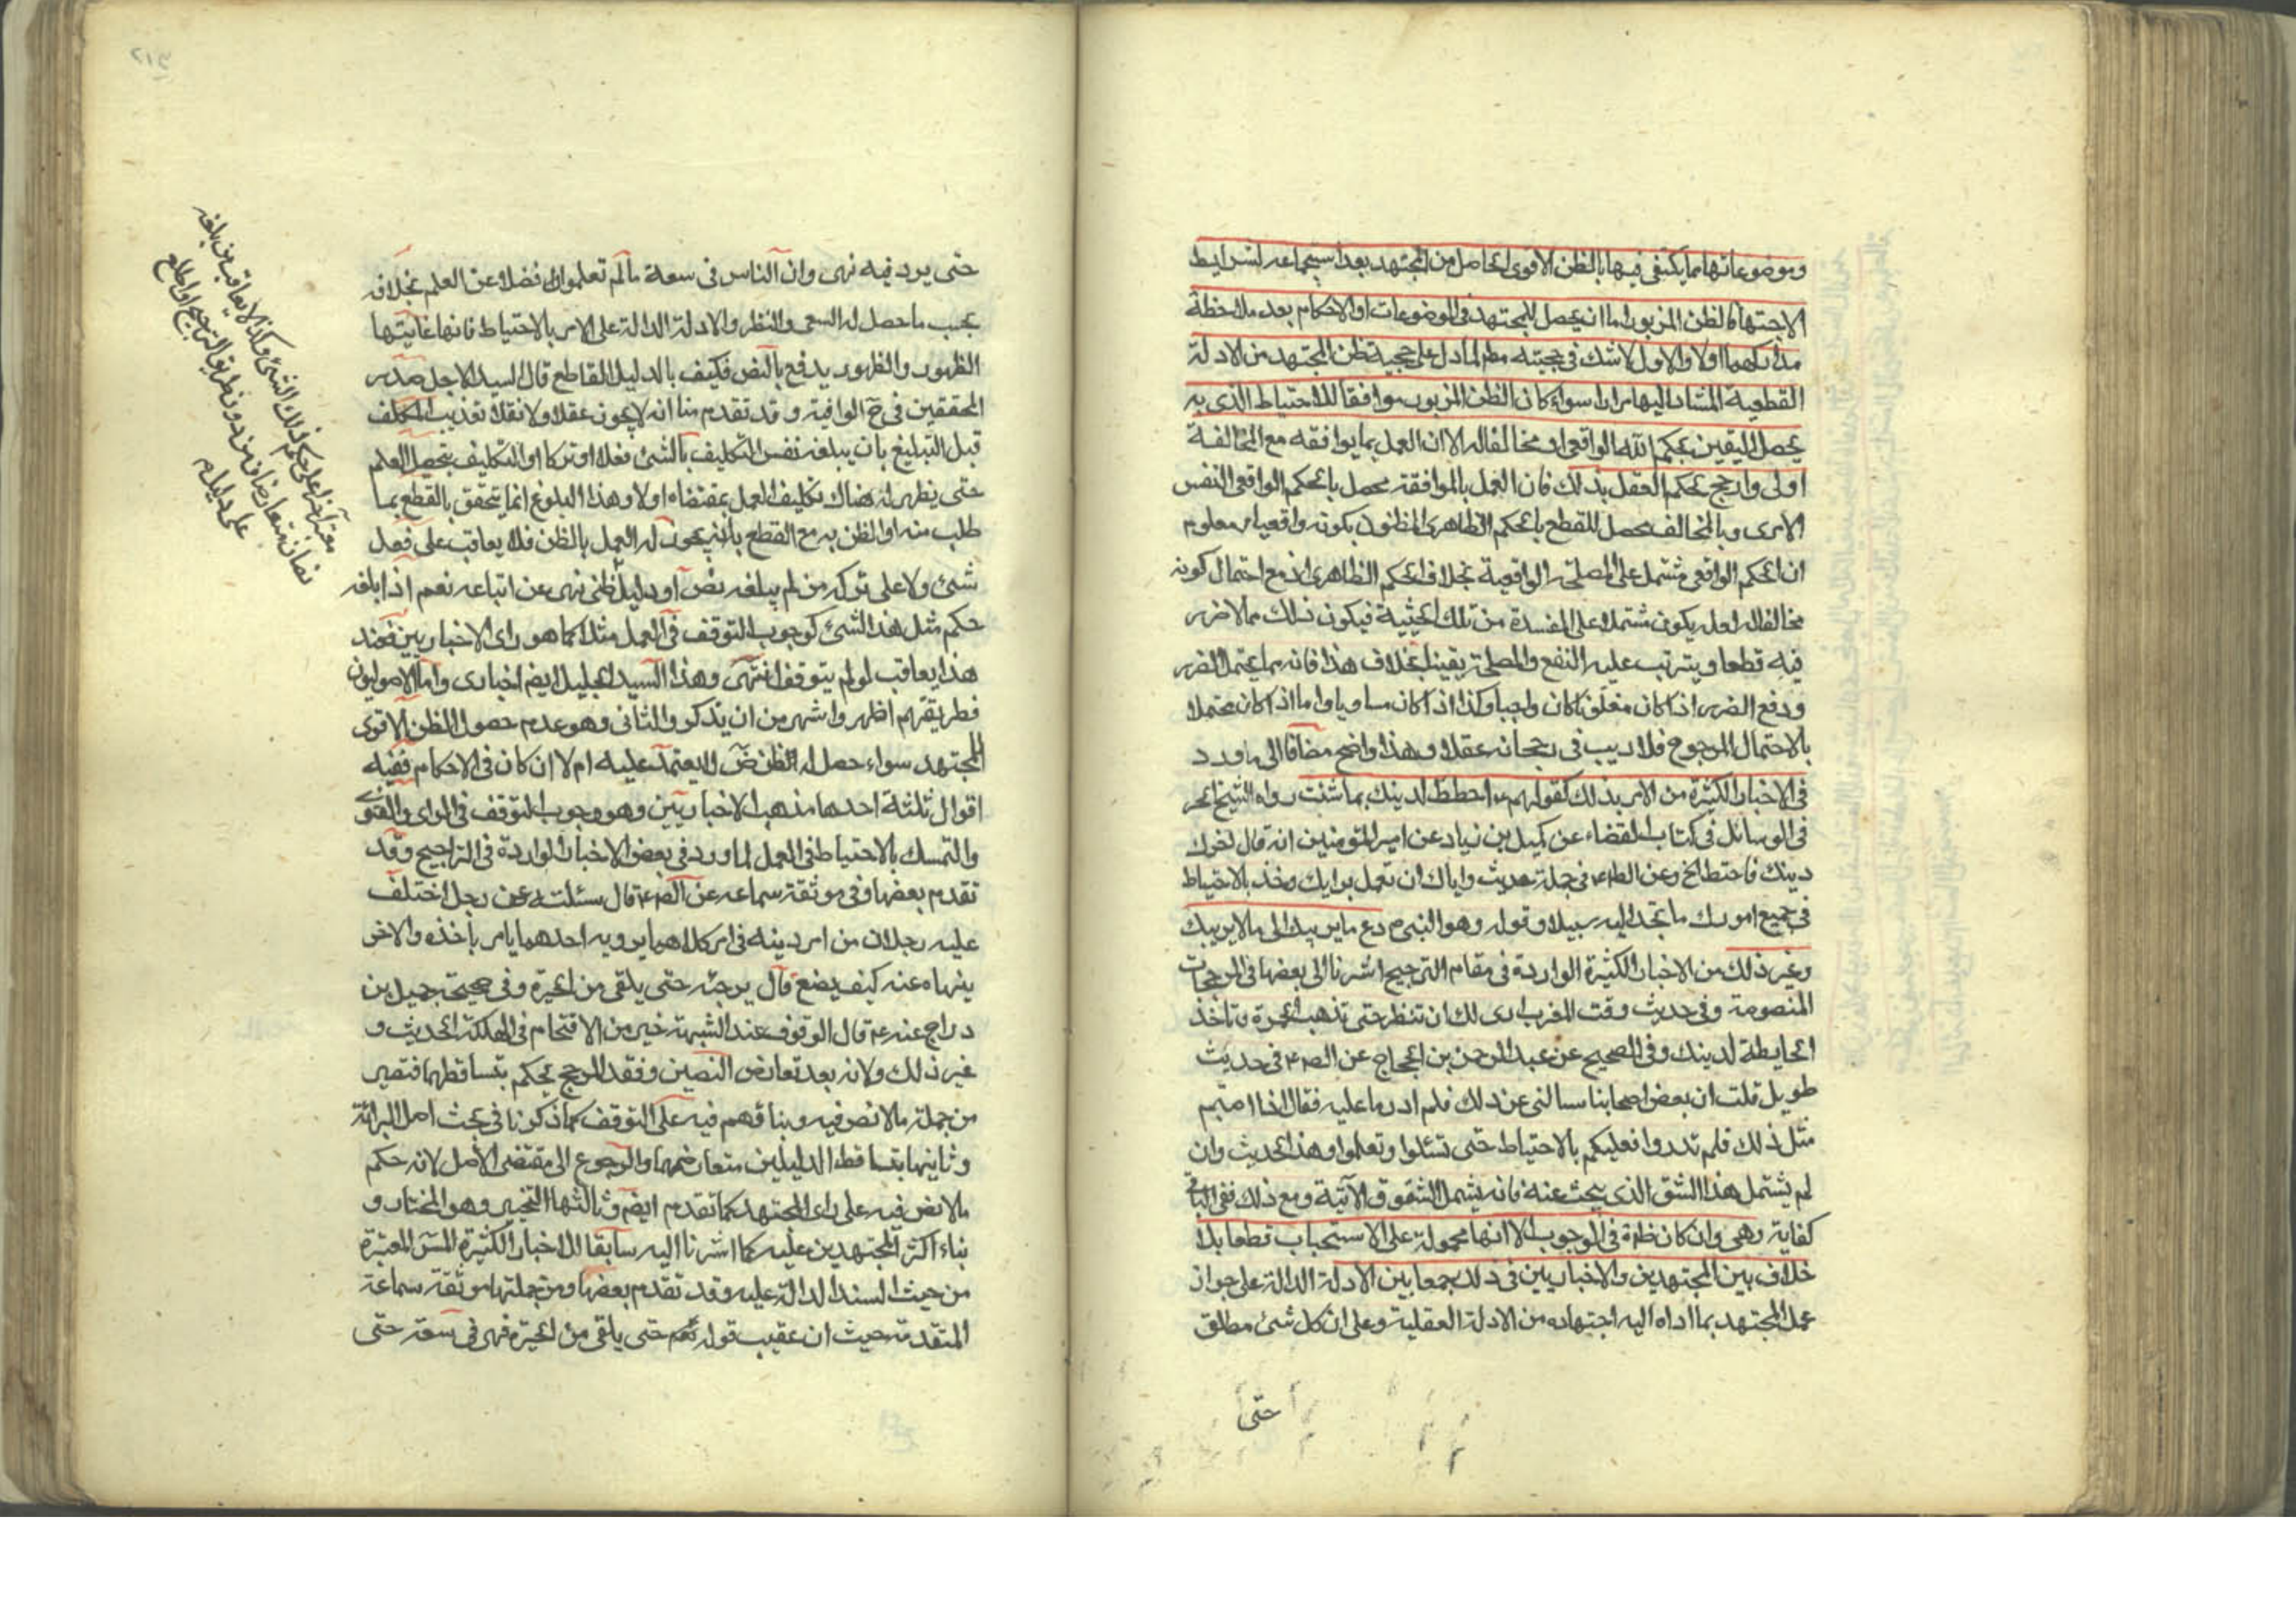 وموضوعاتها مما يكتفى فيها بالظن الاقوى الحاصل من المجتهد بعد استجماعه لشرايط
الاجتهاد فالظن المزبور اما ان يحصل للمجتهد فى الموضوعات او الاحكام بعد ملاحظة
مداركهما اولا والاول لا شك فى حجيته مطم لما دل على حجية ظن المجتهد من الادلة
القطعية المشار اليها مرارا سواء كان الظن المزبور موافقا للاحتياط الذى به
يحصل اليقين بحكم الله الواقعى او مخالفا له الا ان العمل بما يوافقه مع المخالفة
اولى وارجح بحكم العقل بذلك فان العمل بالموافقة محصل بالحكم الواقعى النفس
الامرى وبالمخالف محصل للقطع بالحكم الظاهرى المظنون بكونه واقعيا و معلوم
ان الحكم الواقعى مشتمل على المصلحة الواقعية بخلاف الحكم الظاهرى اذ مع احتمال كونه
مخالفا له لعله يكون مشتملا على المفسدة من تلك الحيثية فيكون ذلك مما لا ضرر
فيه قطعا ويترتب عليه النفع والمصلحة يقينا بخلاف هذا فانه مما يحتمل الضرر
ودفع الضرر اذا كان مظنونا كان واجبا وكذا اذا كان مساويا واما اذا كان محتملا
بالاحتمال المرجوح فلا ريب فى رجحانه عقلا وهذا واضح مضافا الى ما ورد
فى الاخبار الكثيرة من الامر بذلك كقولهم ع احتط لدينك بما شئت رواه الشيخ الحر
فى الوسائل فى كتاب القضاء عن كميل بن زياد عن امير المؤمنين انه قال اخوك
دينك فاحتط الخ وعن الص ع فى جملة حديث واياك ان تعمل برايك وخذ بالاحتياط
فى جميع امورك ما تجد اليه سبيلا وقوله وهو النبى ص دع ما يريبك الى ما لا يريبك
وغير ذلك من الاخبار الكثيرة الواردة فى مقام الترجيح اشرنا الى بعضها فى المرجحات
المنصوصة وفى حديث وقت المغرب ارى لك ان تنتظر حتى تذهب الحمرة وتاخذ
الحايطة لدينك وفى الصحيح عن عبد الرحمن بن الحجاج عن الص ع فى حديث
طويل قلت ان بعض اصحابنا سالنى عن ذلك فلم ادر ما عليه فقال اذا اصبتم
مثل ذلك فلم تدروا فعليكم بالاحتياط حتى تسئلوا وتعلموا وهذا الحديث وان
لم يشتمل هذا الشق الذى يبحث عنه فانه يشمل الشقوق الآتية ومع ذلك ففى الباقى
كفاية وهى وان كان ظاهرة فى الوجوب الا انها محمولة على الاستحباب قطعا بلا
خلاف بين المجتهدين والاخباريين فى ذلك جمعا بين الادلة الدالة على جواز
عمل المجتهد بما اداه اليه اجتهاده من الادلة العقلية وعلى ان كل شئ مطلق
حتى
٢١٣
حتى يرد فيه نهى وان الناس فى سعة ما لم تعلموا فضلا عن العلم بخلافه
بحسب ما حصل له السعى والنظر والادلة الدالة على الامر بالاحتياط فانها غايتها
الظهور والظهور يدفع بالنص فكيف بالدليل القاطع قال السيد الاجل صدر
المحققين فى ح الوافية وقد تقدم منا انه لا يجوز عقلا ولا نقلا تعذيب المكلف
قبل التبليغ بان يبلغه نفس التكليف بالشئ فعلا او تركا او التكليف بتحصيل العلم
حتى يظهر له هناك تكليف العمل بمقتضاه اولا وهذا البلوغ انما يتحقق بالقطع بما
طلب منه او الظن به مع القطع بانه يجوز له العمل بالظن فلا يعاقب على فعل
شئ ولا على تركه من لم يبلغه نص او دليل ظنى نهى عن اتباعه نعم اذا بلغه
حكم مثل هذا الشئ كوجوب التوقف فى العمل مثلا كما هو راى الاخباريين فعند
هذا يعاقب لو لم يتوقف انتهى وهذا السيد الجليل ايضم اخبارى واما الاصوليون
فطريقتهم اظهر واشهر من ان يذكر والثانى وهو عدم حصول الظن الاقوى
للمجتهد سواء حصل له الظن ض لا يعتمد عليه ام لا ان كان فى الاحكام ففيه
اقوال ثلثة احدها مذهب الاخباريين وهو وجوب التوقف فى الراى والفتوى
والتمسك بالاحتياط فى العمل لما ورد فى بعض الاخبار الواردة فى التراجيح وقد
تقدم بعضها وفى موثقة سماعه عن الص ع قال سئلته عن رجل اختلف
عليه رجلان من امر دينه فى امر كلاهما يرويه احدهما يامر باخذه والاخر
ينهاه عنه كيف يصنع قال يرجئه حتى يلقى من الخيرة وفى صحيحة جميل بن
دراج عنه ع قال الوقوف عند الشبهة خير من الاقتحام فى الهلكة الحديث و
غير ذلك ولانه بعد تعارض النصين وفقد المرجح يحكم بتساقطهما فتصير
من جملة ما لا نص فيه وبناؤهم فيه على التوقف كما ذكرنا فى بحث اصل البرائة
وثانيها تساقط الدليلين متعارضهما والرجوع الى مقتضى الاصل لانه حكم
ما لا نص فيه على راى المجتهد كما تقدم ايضم وثالثها التخيير وهو المختار و
بناء اكثر المجتهدين عليه كما اشرنا اليه سابقا للاخبار الكثيرة المعتبرة
من حيث السند الدالة عليه وقد تقدم بعضها ومن جملتها موثقة سماعة
المتقدمة حيث ان عقيب قوله حتى يلقى من الخيرة فهو فى سعة حتى
على حكم ذلك الشئ وكذا لا يعاقب من بلغه
نصان متعارضان من دون طريق الترجيح او اطلع
على دليل